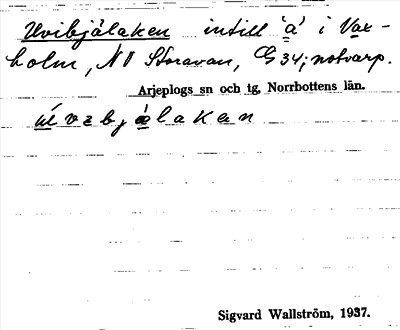 Uvibjälaken intill 'a' i Vax-
holm, NO Storavan, G 34; notvarp.
Arjeplogs sn och tg, Norrbottens län.
úvzbjälakan
Sigvard Wallström, 1937.